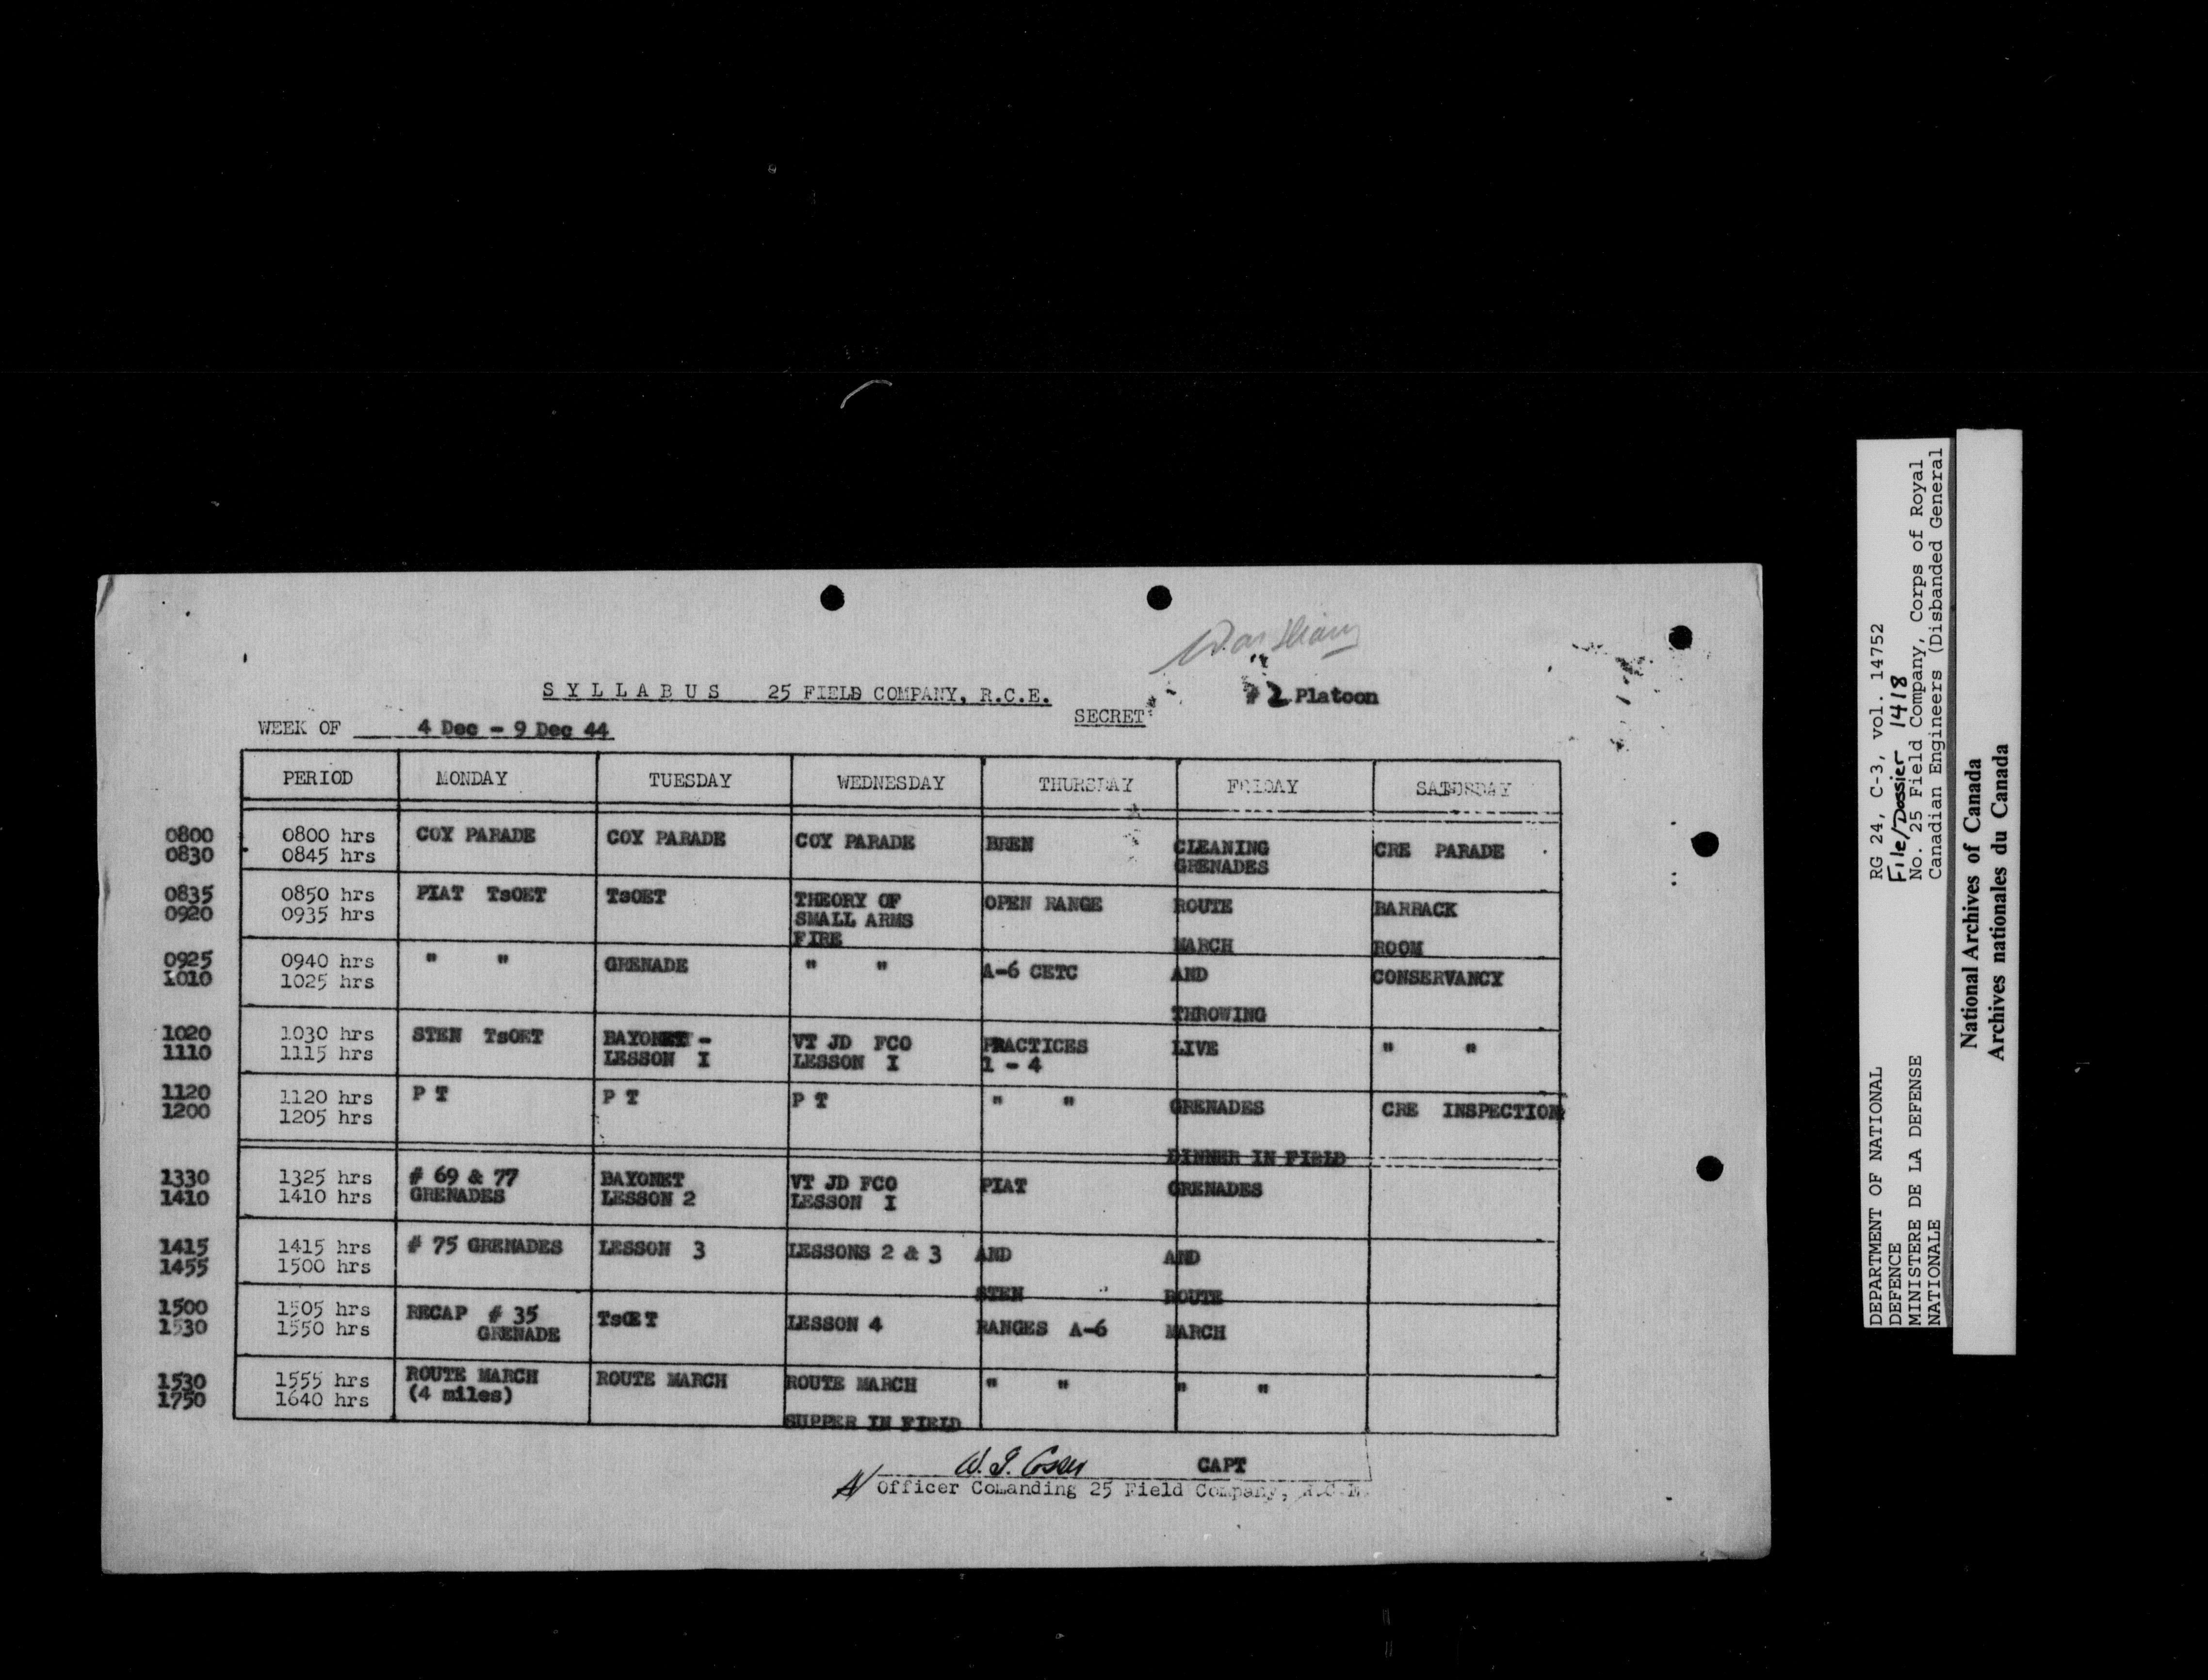 War Diary
S Y L L A B U S 25 FIELD COMPANY, R.C.E.
# 2 Platoon
SECRET
WEEK OF 4 Dec - 9 Dec 44
PERIOD MONDAY TUESDAY WEDNESDAY THURSDAY FRIDAY SATURDAY
0800 0800 hrs COY PARADE COY PARADE COY PARADE BREN CLEANING CRE PARADE
0830 0845 hrs GRENADES
0835 0850 hrs PIAT TsOET TsOET THEORY OF OPEN RANGE ROUTE BARRACK
0920 0935 hrs SMALL ARMS
FIRE MARCH ROOM
0925 0940 hrs " " GRENADE " " A-6 CETC AND CONSERVANCY
1010 1025 hrs
THROWING
1020 1030 hrs STEN TsOET BAYONET - VT JD FCO PRACTICES LIVE " "
1110 1115 hrs LESSON I LESSON I 1 - 4
1120 1120 hrs P T P T P T " " GRENADES CRE INSPECTION
1200 1205 hrs
DINNER IN FIELD
1330 1325 hrs # 69 & 77 BAYONET VT JD FCO PIAT GRENADES
1410 1410 hrs GRENADES LESSON 2 LESSON I
1415 1415 hrs # 75 GRENADES LESSON 3 LESSONS 2 & 3 AND AND
1455 1500 hrs
STEN ROUTE
1500 1505 hrs RECAP # 35 TsOET LESSON 4 RANGES A-6 MARCH
1530 1550 hrs GRENADE
1530 1555 hrs ROUTE MARCH ROUTE MARCH ROUTE MARCH " " " "
1750 1640 hrs (4 miles)
SUPPER IN FIELD
CAPT
Officer Comanding 25 Field Company, R.C.E.
DEPARTMENT OF NATIONAL RG 24, C-3, vol. 14752
DEFENCE File/Dossier 1418
MINISTERE DE LA DEFENSE No. 25 Field Company, Corps of Royal
NATIONALE Canadian Engineers (Disbanded General
National Archives of Canada
Archives nationales du Canada